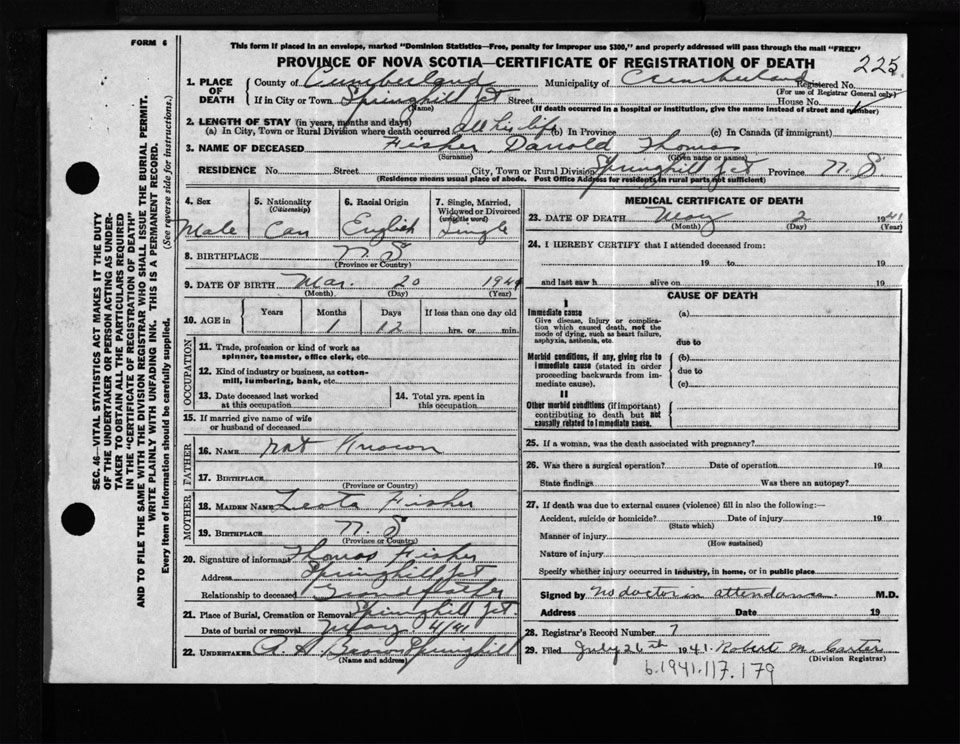 FORM 6
This form if placed in an envelope, marked "Dominion Statistics—Free, penalty for improper use $300," and properly addressed will pass through the mail "FREE"
PROVINCE OF NOVA SCOTIA—CERTIFICATE OF REGISTRATION OF DEATH
225
1. PLACE OF DEATH
County of Cumberland Municipality of Cumberland Registered No.
(For use of Registrar General only)
If in City or Town Springhill Jct Street House No.
(Name) (If death occurred in a hospital or institution, give the name instead of street and number)
2. LENGTH OF STAY (in years, months and days)
(a) In City, Town or Rural Division where death occurred all his life (b) In Province (c) In Canada (if immigrant)
3. NAME OF DECEASED Fisher, Darrold Thomas
(Surname) (Given name or names)
RESIDENCE No. Street City, Town or Rural Division Springhill Jct Province N.S.
(Residence means usual place of abode. Post Office Address for residents in rural parts not sufficient)
4. Sex 5. Nationality (Citizenship) 6. Racial Origin 7. Single, Married, Widowed or Divorced (write the word)
Male Can English Single
8. BIRTHPLACE N.S
(Province or Country)
9. DATE OF BIRTH Mar. 20 1941
(Month) (Day) (Year)
10. AGE in Years Months Days If less than one day old
1 12 hrs. or min.
OCCUPATION
11. Trade, profession or kind of work as spinner, teamster, office clerk, etc.
12. Kind of industry or business, as cotton-mill, lumbering, bank, etc.
13. Date deceased last worked at this occupation
14. Total yrs. spent in this occupation
15. If married give name of wife or husband of deceased
FATHER
16. NAME not Known
17. BIRTHPLACE
(Province or Country)
MOTHER
18. MAIDEN NAME Fisher
19. BIRTHPLACE N. S
(Province or Country)
20. Signature of informant Thomas Fisher
Address Springhill Jct
Relationship to deceased Grandfather
21. Place of Burial, Cremation or Removal Springhill Jct
Date of burial or removal May 4/41
22. UNDERTAKER A. H. Brown Springhill
(Name and address)
MEDICAL CERTIFICATE OF DEATH
23. DATE OF DEATH May 2 1941
(Month) (Day) (Year)
24. I HEREBY CERTIFY that I attended deceased from:
19 to 19
and last saw h alive on 19
CAUSE OF DEATH
I
Immediate cause (a)
Give disease, injury or complication which caused death, not the mode of dying, such as heart failure, asphyxia, asthenia, etc.
due to
Morbid conditions, if any, giving rise to immediate cause (stated in order proceeding backwards from immediate cause).
(b)
due to
(c)
II
Other morbid conditions (if important) contributing to death but not causally related to immediate cause.
25. If a woman, was the death associated with pregnancy?
26. Was there a surgical operation? Date of operation 19
State findings Was there an autopsy?
27. If death was due to external causes (violence) fill in also the following:—
Accident, suicide or homicide? Date of injury 19
(State which)
Manner of injury
(How sustained)
Nature of injury
Specify whether injury occurred in industry, in home, or in public place
Signed by No doctor in attendance M.D.
Address Date 19
28. Registrar's Record Number 7
29. Filed July 26th 1941. Robert M. Carter
(Division Registrar)
b.1941.117.179
SEC. 46—VITAL STATISTICS ACT MAKES IT THE DUTY
OF THE UNDERTAKER OR PERSON ACTING AS UNDERTAKER
TO OBTAIN ALL THE PARTICULARS REQUIRED
IN THE "CERTIFICATE OF REGISTRATION OF DEATH"
AND TO FILE THE SAME WITH THE DIVISION REGISTRAR WHO SHALL ISSUE THE BURIAL PERMIT.
WRITE PLAINLY WITH UNFADING INK. THIS IS A PERMANENT RECORD.
Every item of information should be carefully supplied. (See reverse side for instructions.)